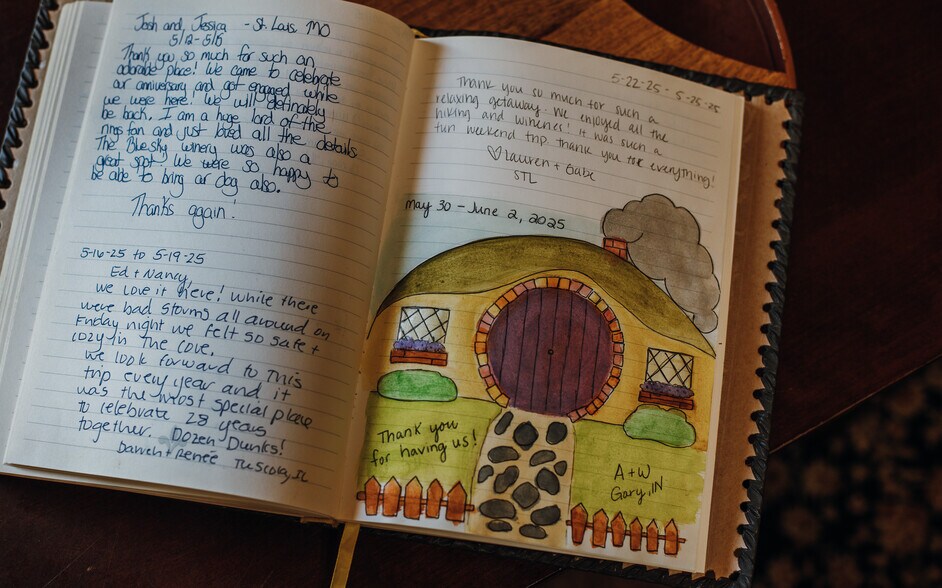 Josh and Jessica - St. Louis, MO
5/12-5/15
Thank you so much for such an
adorable place! We came to celebrate
our anniversary and got engaged while
we were here! We will definately
be back. I am a huge lord of the
rings fan and just loved all the details
The Blue sky winery was also a
great spot. We were so happy to
be able to bring our dog also.
Thanks again!
5-16-25 to 5-19-25
Ed + Nancy,
We Love it here! While there
were bad storms all around on
Friday night we felt so safe +
cozy in the cove.
We look forward to this
trip every year and it
was the most special place
to celebrate 28 years
together. Dozen Dunks!
Darren + Renée Tuscola, IL
5-22-25 - 5-25-25
Thank you so much for such a
relaxing getaway. We enjoyed all the
hiking and wineries! It was such a
fun weekend trip. Thank you for everything!
♡ Lauren + Gabe
STL
May 30 - June 2, 2025
Thank you
for having us!
A + W
Gary, IN